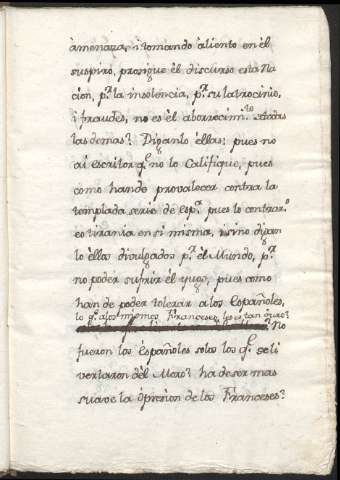 amenaza, i tomando aliento en él
suspiro, prosigue él discurso esta Na
cion, p.r la insolencia, p.r su latrocinio,
i fraudes, no es el aborrecim.to de todas
las demas? Diganlo éllas; pues no
ai escritor q.e no lo Califique, pues
como han de prevalecer contra la
templada serie de Esp.a pues lo contrar.o
es tirania en si misma, i sino digan
lo éllas divulgados p.r él Mundo, p.r
no poder sufrir él yugo, pues como
han de poder tolerar a los Españoles,
lo q.e a los mismos Franceses les es tan duro?
No
fueron los Españoles solos los q.e se li
vertaron dél Moro? ha de ser mas
suave la opresion de los Franceses?